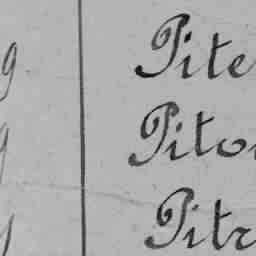 g Pite
g Pito
y Pitr